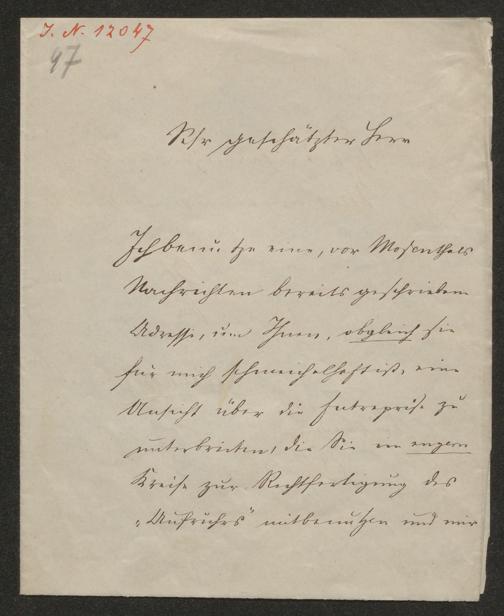 J. N. 12047
47
Sehr geschätzter Herr
Ich benutze eine, vor Mosenthals
Nachrichten bereits geschriebene
Adresse, um Ihnen, obgleich sie
für mich schmeichelhaft ist, eine
Ansicht über die Entreprise zu
unterbreiten, die Sie im engern
Kreise zur Rechtfertigung des
"Aufruhrs" mitbenutzen und mir